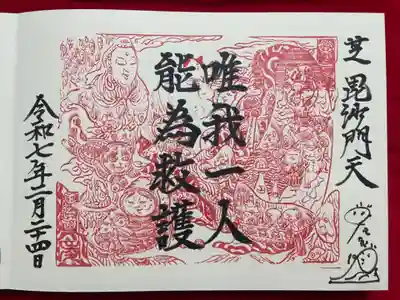 芝毘沙門天
唯我一人
能為救護
令和七年二月二十四日